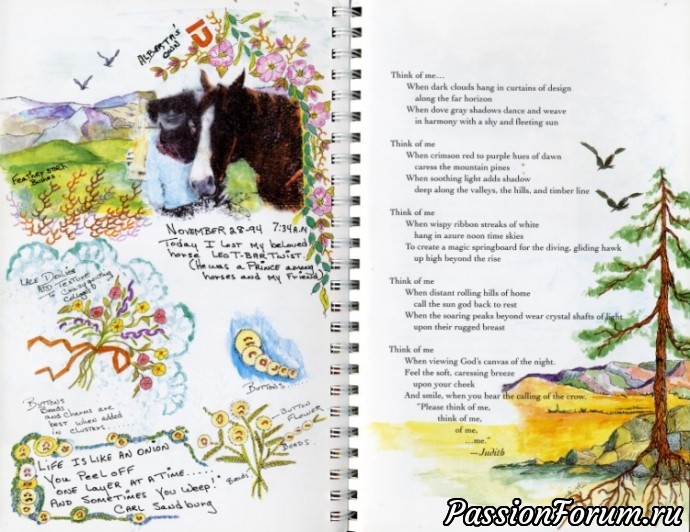 ALBERTA'S
OWN
FEATHER STITCH
BUSHES
NOVEMBER 28-94 7:34 A.M
Today I Lost my beloved
horse LEO T-BAR TWIST.
(He was a PRINCE among
horses and my Friend)
LACE DOILIES
ADD TEXTURE
To CRAZY quilting
Collages
BUTTONS
Beads
and Charms are
best when added
in clusters....
BUTTONS
BUTTON
FLOWER
BEADS..
Beads
LIFE IS LIKE AN ONION
YOU PEEL OFF
ONE LAYER AT A TIME.....
AND SOMETIMES YOU WEEP!
CARL SANDBURG
Think of me...
When dark clouds hang in curtains of design
along the far horizon
When dove gray shadows dance and weave
in harmony with a shy and fleeting sun
Think of me
When crimson red to purple hues of dawn
caress the mountain pines
When soothing light adds shadow
deep along the valleys, the hills, and timber line
Think of me
When wispy ribbon streaks of white
hang in azure noon time skies
To create a magic springboard for the diving, gliding hawk
up high beyond the rise
Think of me
When distant rolling hills of home
call the sun god back to rest
When the soaring peaks beyond wear crystal shafts of light
upon their rugged breast
Think of me
When viewing God's canvas of the night.
Feel the soft, caressing breeze
upon your cheek
And smile, when you hear the calling of the crow.
"Please think of me,
think of me,
of me,
...me."
—Judith
PassionForum.ru